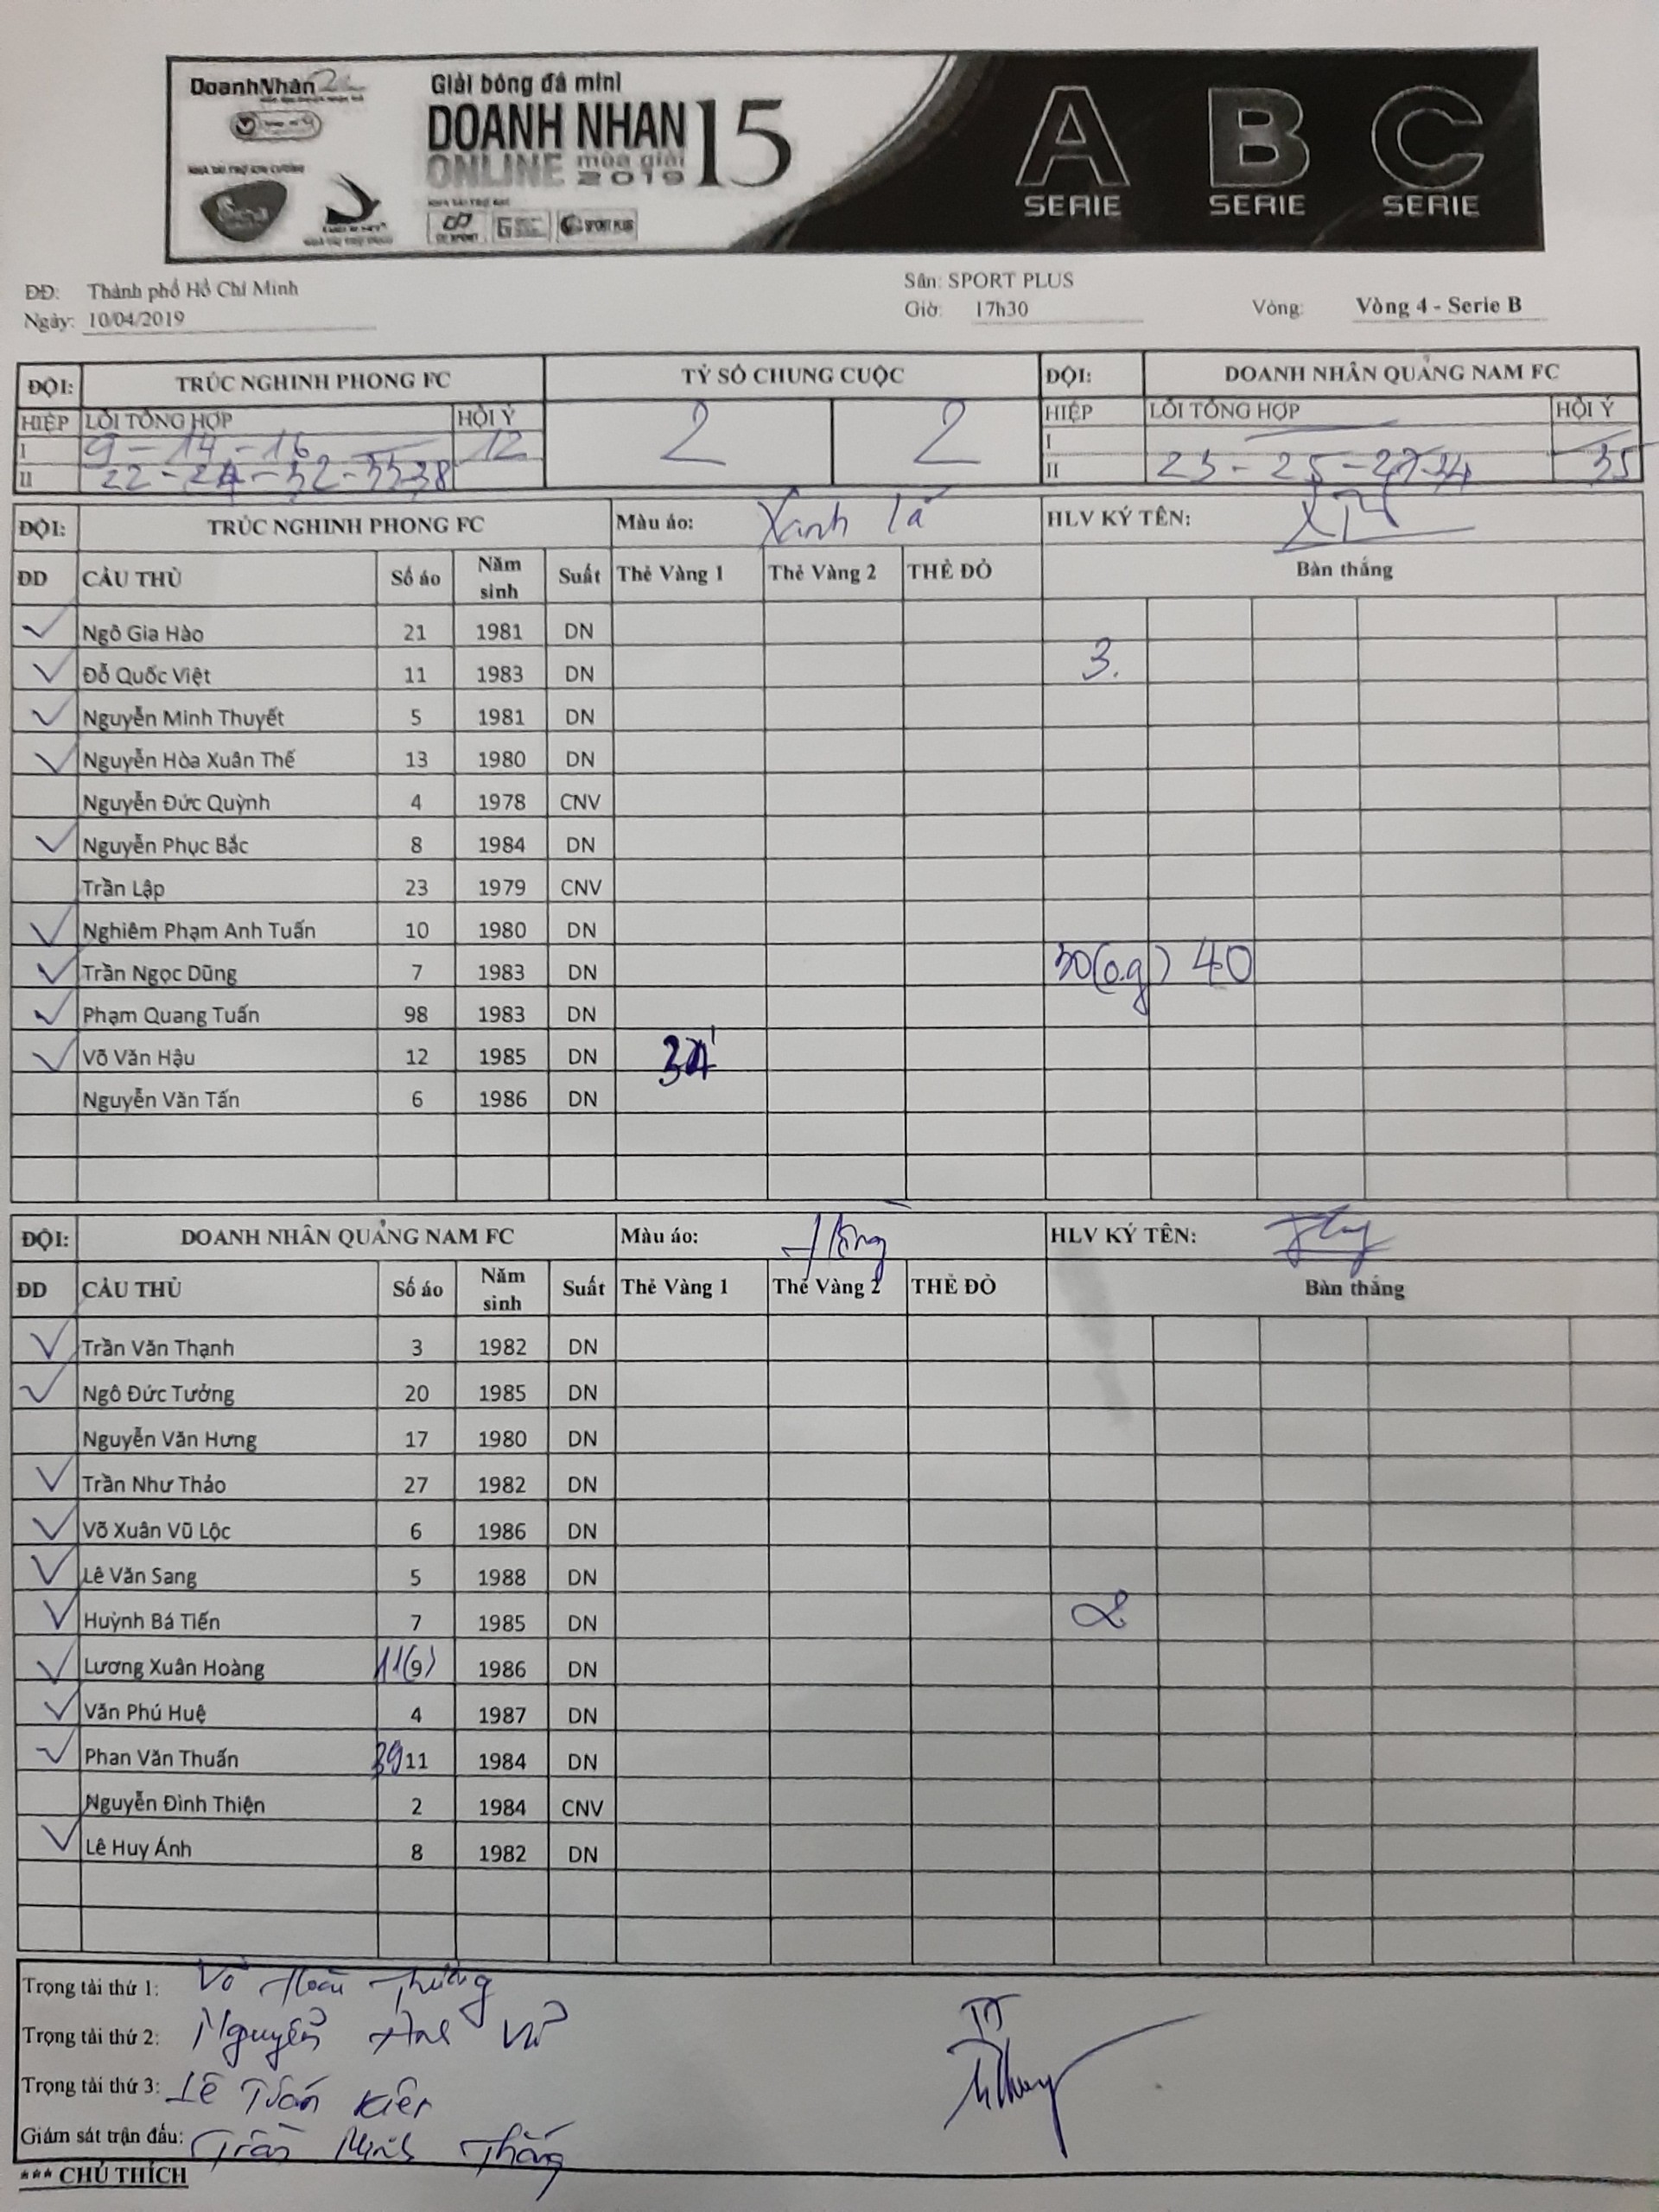 DoanhNhân
Giải bóng đá mini
DOANH NHAN 15
ONLINE mùa giải 2019
NHÀ TÀI TRỢ KIM CƯƠNG
SPORT PLUS
A B C
SERIE SERIE SERIE
ĐĐ: Thành phố Hồ Chí Minh Sân: SPORT PLUS
Ngày: 10/04/2019 Giờ: 17h30 Vòng: Vòng 4 - Serie B
ĐỘI: TRÚC NGHINH PHONG FC TỶ SỐ CHUNG CUỘC ĐỘI: DOANH NHÂN QUẢNG NAM FC
HIỆP LỖI TỔNG HỢP HỘI Ý 2 2 HIỆP LỖI TỔNG HỢP HỘI Ý
I 9 - 14 - 16 12 I
II 22 - 24 - 32 - 35 38 II 23 - 25 - 27 34 35
ĐỘI: TRÚC NGHINH PHONG FC Màu áo: Xanh lá HLV KÝ TÊN:
ĐD CẦU THỦ Số áo Năm sinh Suất Thẻ Vàng 1 Thẻ Vàng 2 THẺ ĐỎ Bàn thắng
Ngô Gia Hào 21 1981 DN
Đỗ Quốc Việt 11 1983 DN 3.
Nguyễn Minh Thuyết 5 1981 DN
Nguyễn Hòa Xuân Thế 13 1980 DN
Nguyễn Đức Quỳnh 4 1978 CNV
Nguyễn Phục Bắc 8 1984 DN
Trần Lập 23 1979 CNV
Nghiêm Phạm Anh Tuấn 10 1980 DN
Trần Ngọc Dũng 7 1983 DN 30(o.g) 40
Phạm Quang Tuấn 98 1983 DN
Võ Văn Hậu 12 1985 DN 34'
Nguyễn Văn Tấn 6 1986 DN
ĐỘI: DOANH NHÂN QUẢNG NAM FC Màu áo: Hồng HLV KÝ TÊN:
ĐD CẦU THỦ Số áo Năm sinh Suất Thẻ Vàng 1 Thẻ Vàng 2 THẺ ĐỎ Bàn thắng
Trần Văn Thạnh 3 1982 DN
Ngô Đức Tưởng 20 1985 DN
Nguyễn Văn Hưng 17 1980 DN
Trần Như Thảo 27 1982 DN
Võ Xuân Vũ Lộc 6 1986 DN
Lê Văn Sang 5 1988 DN
Huỳnh Bá Tiến 7 1985 DN 8
Lương Xuân Hoàng 11(9) 1986 DN
Văn Phú Huệ 4 1987 DN
Phan Văn Thuấn 39 11 1984 DN
Nguyễn Đình Thiện 2 1984 CNV
Lê Huy Ánh 8 1982 DN
Trọng tài thứ 1: Võ Hoài Thương
Trọng tài thứ 2: Nguyễn Anh Vũ
Trọng tài thứ 3: Lê Tuấn Kiên
Giám sát trận đấu: Trần Minh Thắng
*** CHÚ THÍCH